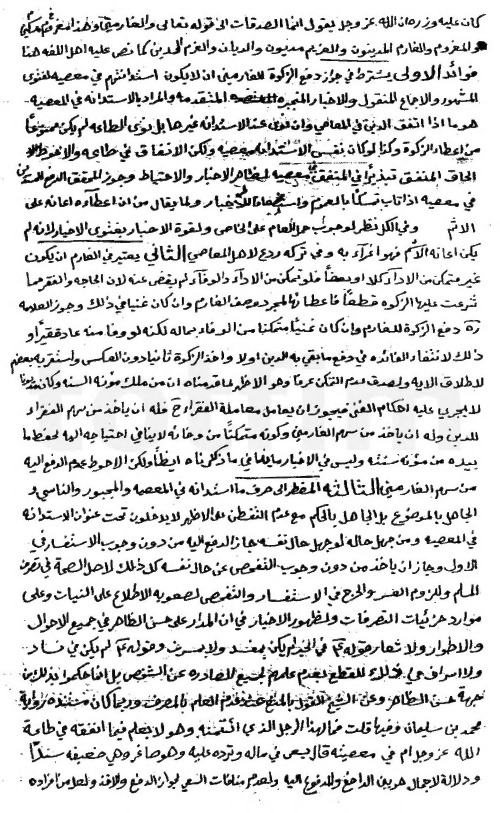 كان عليه وزر ان الله عز وجل يقول انما الصدقات الى قوله تعالى والغارمين وهذا مغرم
والمغروم والغارم المديون والغريم مديون والديان والغرم الدين كما نص عليه اهل اللغه هنا
فوائد الاولى يشترط في جواز دفع الزكوة للغارمين ان لا يكون استدانتهم في معصيه لفتوى
المشهور والاجماع المنقول والاخبار المتقدمه والمراد بالاستدانه في المعصيه
هو ما اذا اتفق الدين في المعاصي وان نوى عند الاستدانه غيرها بل نوى الطاعه لم يكن ممنوعا
من اعطاء الزكوة وكذا لو كان نفس الاستدانه معصيه ولكن الانفاق في طاعه والاحوط
الحاق المنفق تبذيرا في المنفق في معصيه الاخبار والاحتياط وجوز المحقق الدفع
في معصيه اذا تاب تمسكا بالعموم للاخبار ولما يقال من ان اعطاءه اعانه على
الاثم وفي الكل نظر لوجوب حمل العام على الخاص ولقوة الاخبار بفتوى الاخيار لانه لم
يكن اعانه الاثم فهو اغراء به وفي تركه ردع لاهل المعاصي الثاني يعتبر في الغارم ان يكون
غير متمكن من الاداء كلا او بعضا فلو تمكن من الاداء والوفاء لم يقض عنه لان الحاجه والفقر مما
شرعت عليها الزكوه قطعا فاعطائها لمجرد وصف الغارم وان كان غنيا في ذلك وجوز العلامه
ره دفع الزكوة للغارم وان كان غنيا متمكنا من الوفاء بماله لكنه لو وفا منه عاد فقيرا و
ذلك لانتفاء الفائده في دفع ما بقي به الدين اولا واخذ الزكوة ثانيا دون العكس واستقر به بعضهم
لاطلاق الايه ولصدق عدم التمكن عرفا وهو الاظهر لما قدمناه ان من ملك مؤنه السنه وكان مديونا
لا يجرى عليه احكام الغنى فيجوز ان يعامل معاملة الفقراء ح فله ان ياخذ من سهم الفقراء
للدين وله ان ياخذ من سهم الغارمين وكونه متمكنا من وفائه لا ينافي احتياجه اليه لحفظ ما
بيده من مؤنه سنته وليس في الاخبار ما ينافي ما ذكرناه ايضا ولكن الاحوط عدم الدفع اليه
من سهم الغارمين الثالثه المضطر الى صرف ما استدانه في المعصيه والمجبور والناسي و
الجاهل بالموضوع بل الجاهل بالحكم مع عدم التفطن على الاظهر لا يدخلون تحت عنوان الاستدانه
في المعصيه ومن جهل حاله لو جهل حال نفسه جاز الدفع اليه من دون وجوب الاستفسار في
الاول وجاز ان ياخذ من دون وجوب التفحص عن حال نفسه كل ذلك لاصل الصحة في تصرف
المسلم وللزوم العسر والحرج في الاستفسار والتفحص لصعوبه الاطلاع على النيات وعلى
موارد جزئيات التصرفات ولظهور الاخبار في ان المدار على حسن الظاهر في جميع الاحوال
والاطوار ولاشعار قوله تم في الخبر لم يكن بمفسد ولا بمسرف وقوله تم لم يكن في فساد
ولا اسراف على ذلك للقطع بعدم علمهم لجميع الصادره عن الشخص بل انما حكموا بذلك من
جهة حسن الظاهر وعن الشيخ القول بالمنع عند عدم العلم بالمصرف وربما كان مستنده رواية
محمد بن سليمان وفيها قلت فما لهذا الرجل الذي ائتمنه وهو لا يعلم فيما انفقه في طاعة
الله عز وجل ام في معصيته قال يسعى في ماله ويرده عليه وهو صاغر وهي ضعيفه سندا
ودلالة لاجمال هو بين الدافع والمدفوع اليه ولعدم منافات السعي لجواز الدفع والاخذ ولعل من افراده